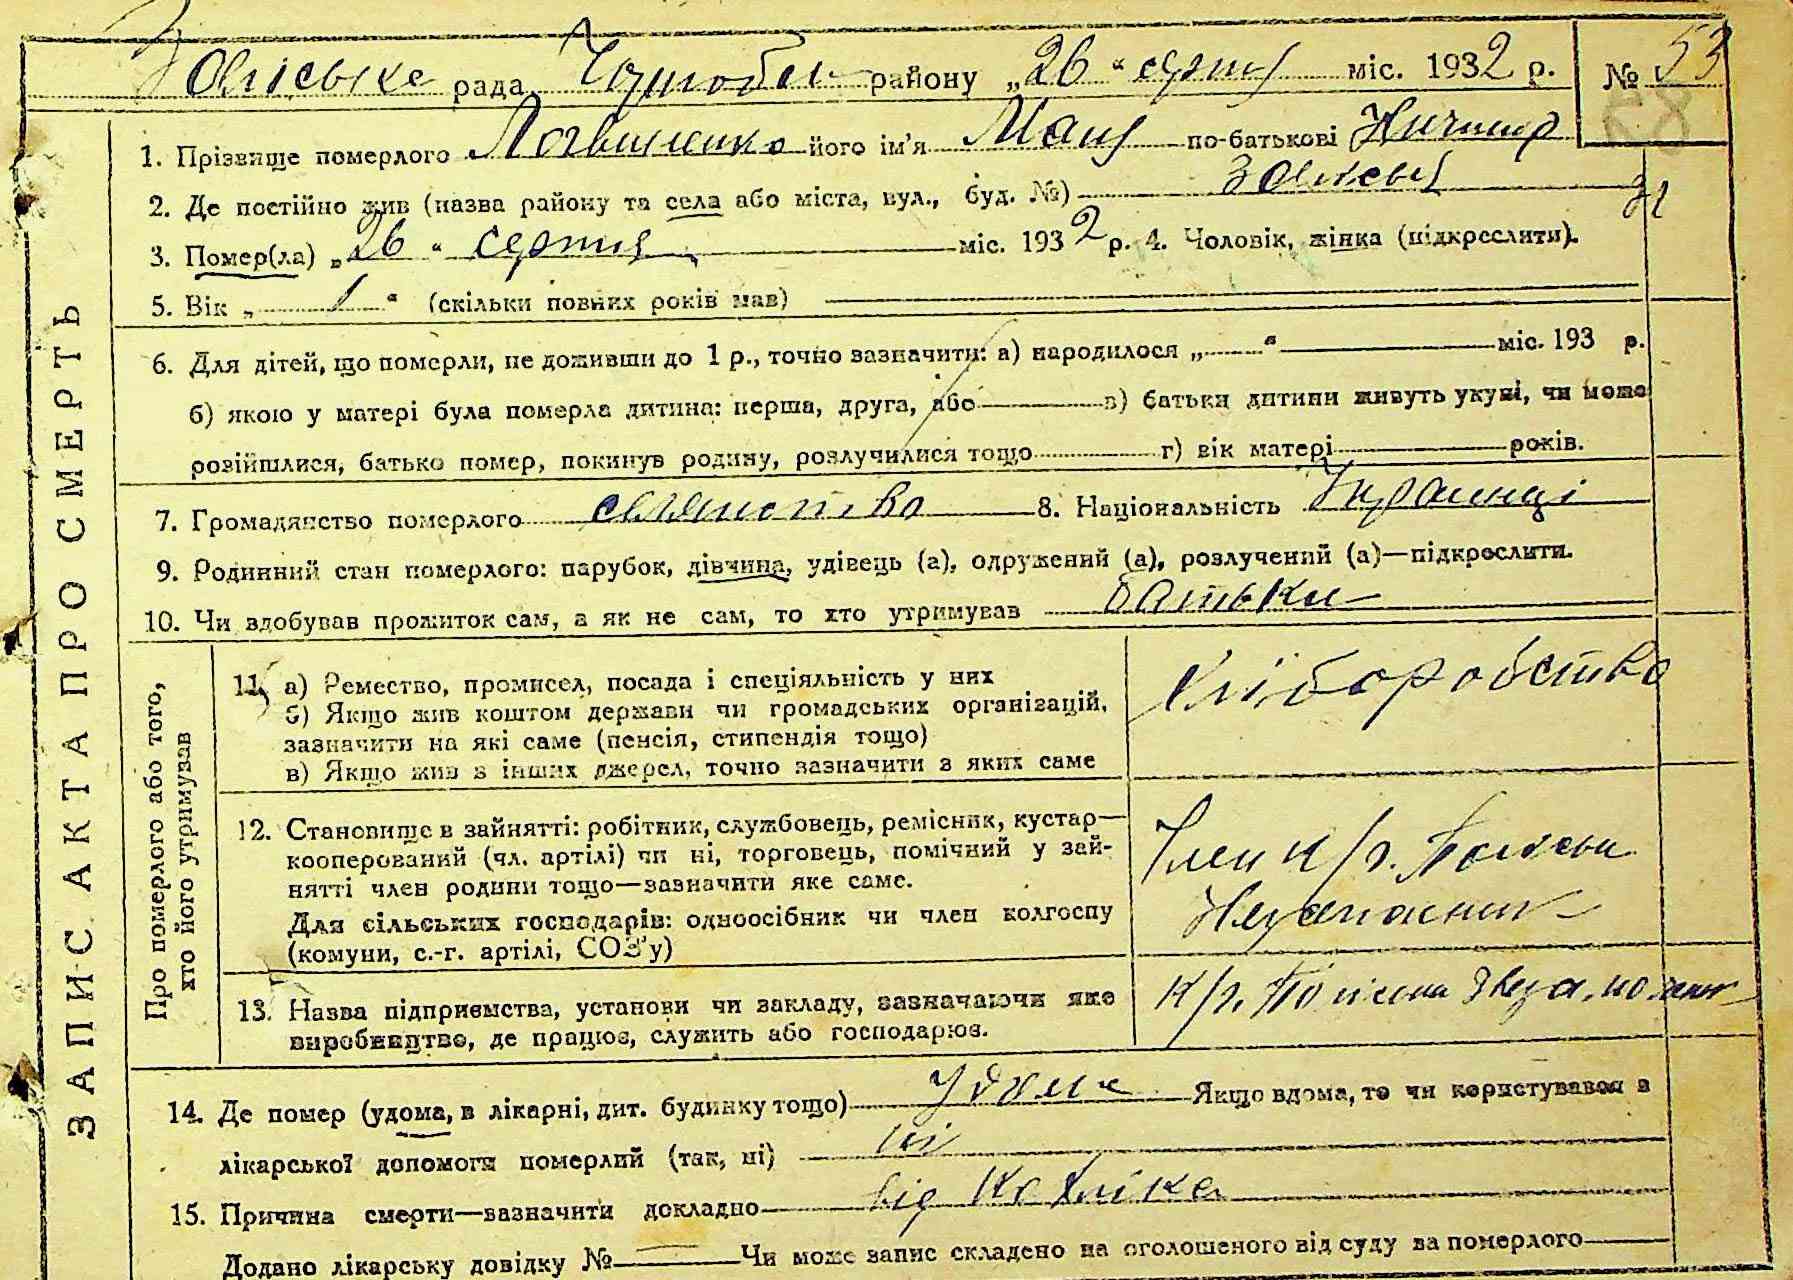 рада района „26“ серпня міс. 1932 р. № 53
1. Прізвище померлого Логвиненко його ім'я по-батькові
2. Де постійно жив (назва району та села або міста, вул., буд. №)
3. Помер(ла) „26“ серпня міс. 1932 р. 4. Чоловік, жінка (підкреслити).
5. Вік „1“ (скільки повних років мав)
6. Для дітей, що померли, не доживши до 1 р., точно зазначити: а) народилося „ “ міс. 193 р.
б) якою у матері була померла дитина: перша, друга, або в) батьки дитини живуть укупі, чи може
розійшлися, батько помер, покинув родину, розлучилися тощо г) вік матері років.
7. Громадянство померлого селянство 8. Національність Українці
9. Родинний стан померлого: парубок, дівчина, удівець (а), одружений (а), розлучений (а)—підкреслити.
10. Чи здобував прожиток сам, а як не сам, то хто утримував батьки
ЗАПИС АКТА ПРО СМЕРТЬ
Про померлого або того,
хто його утримував
11. а) Ремество, промисел, посада і спеціяльність у них
б) Якщо жив коштом держави чи громадських організацій,
зазначити на які саме (пенсія, стипендія тощо)
в) Якщо жив з інших джерел, точно зазначити з яких саме
хліборобство
12. Становище в зайнятті: робітник, службовець, ремісник, кустар—
кооперований (чл. артілі) чи ні, торговець, помічний у зай-
нятті член родини тощо—зазначити яке саме.
Для сільських господарів: одноосібник чи член колгоспу
(комуни, с.-г. артілі, СОЗ'у)
Член к/г.
13. Назва підприємства, установи чи закладу, зазначаючи яке
виробництво, де працює, служить або господарює.
к/г.
14. Де помер (удома, в лікарні, дит. будинку тощо) удома Якщо вдома, то чи користувався з
лікарської допомоги померлий (так, ні) ні
15. Причина смерти—зазначити докладно від Кохлюка
Додано лікарську довідку № Чи може запис складено на оголошеного від суду за померлого